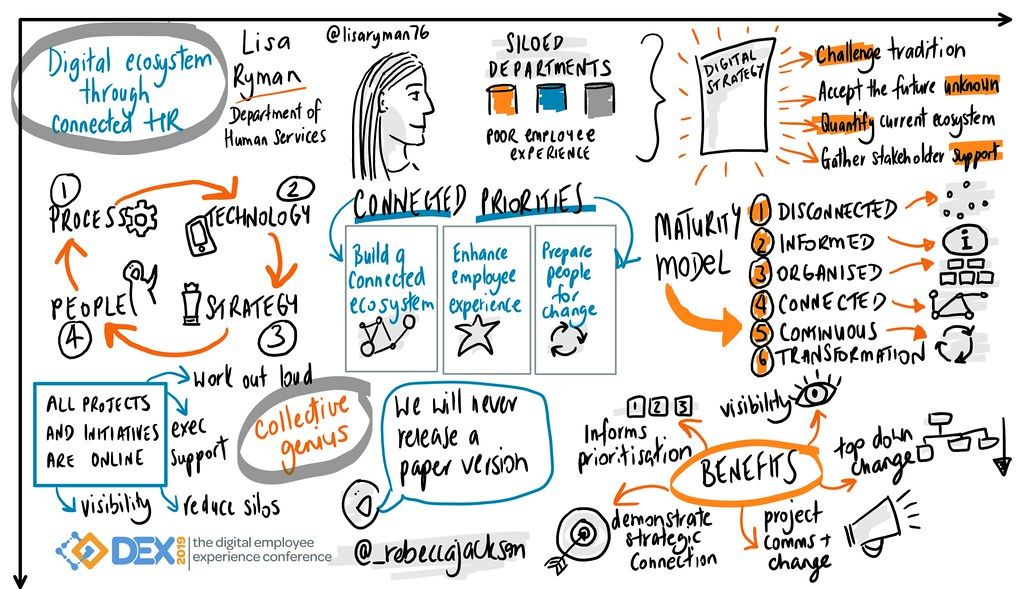 Digital ecosystem
through
connected HR
Lisa
Ryman
Department of
Human Services
@lisaryman76
SILOED
DEPARTMENTS
POOR EMPLOYEE
EXPERIENCE
DIGITAL
STRATEGY
Challenge tradition
Accept the future unknown
Quantify current ecosystem
Gather stakeholder support
1
PROCESS
2
TECHNOLOGY
PEOPLE
4
STRATEGY
3
CONNECTED PRIORITIES
Build a
connected
ecosystem
Enhance
employee
experience
Prepare
people
for
change
MATURITY
MODEL
1 DISCONNECTED
2 INFORMED
i
3 ORGANISED
4 CONNECTED
5 CONTINUOUS
6 TRANSFORMATION
ALL PROJECTS
AND INITIATIVES
ARE ONLINE
work out loud
exec
support
visibility
reduce silos
collective
genius
We will never
release a
paper version
@_rebeccajackson
1 2 3
Informs
prioritisation
visibility
BENEFITS
top down
change
demonstrate
strategic
connection
project
comms +
change
DEX 2019
the digital employee
experience conference